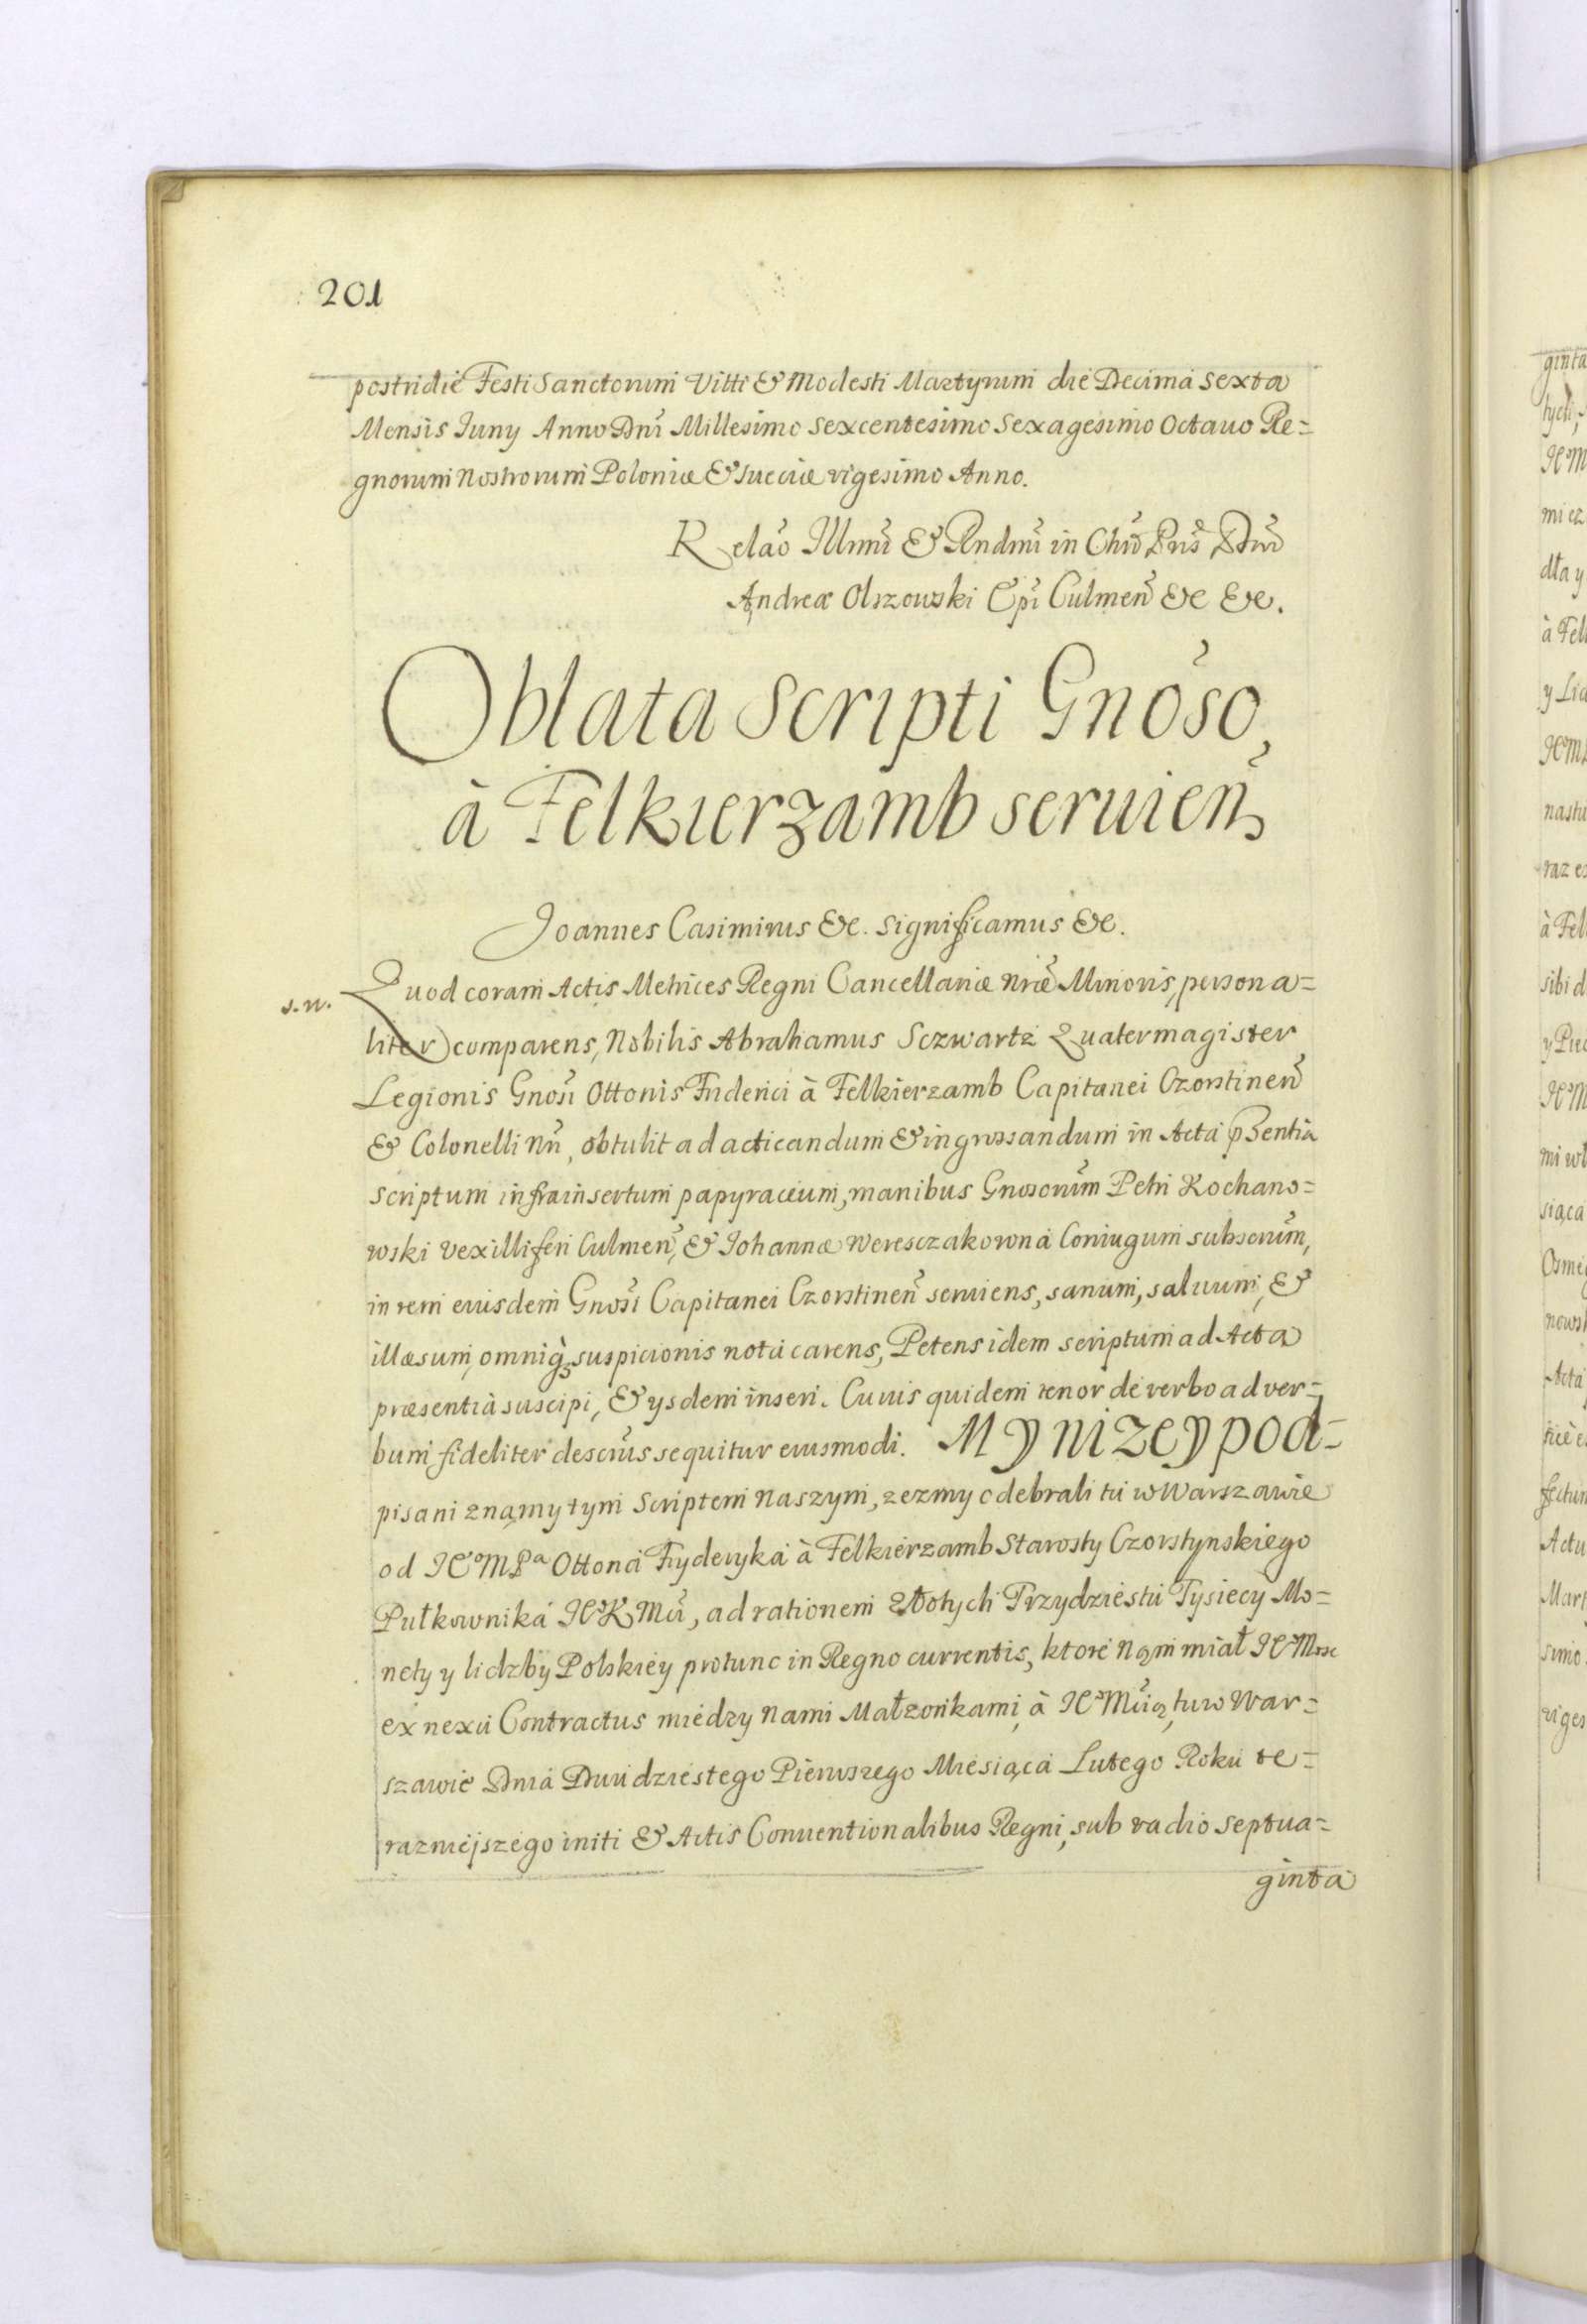 201
postridie Festi Sanctorum Vitti & Modesti Martyrum die Decima sexta
Mensis Iuny Anno Dni Millesimo sexcentesimo sexagesimo Octauo Re=
gnorum Nostrorum Poloniæ & Sueciæ vigesimo Anno.
Relao Illmi & Rndmi in Chro Pris Dni
Andreæ Olszowski Epi Culmen &c &c.
Oblata Scripti Gnoso,
à Felkierzamb seruien
Joannes Casimirus &c. Significamus &c.
s. n.
Quod coram Actis Metrices Regni Cancellariæ nræ Minoris, persona=
liter comparens, Nobilis Abrahamus Sczwartz Quatermagister
Legionis Gnosi Ottonis Friderici à Felkierzamb Capitanei Czorstinen
& Colonelli Nri, obtulit ad acticandum & ingrossandum in Acta pntia
scriptum infrainsertum papyraceum, manibus Gnosorum Petri Kochano=
wski vexilliferi Culmen, & Johannæ Weresczakowna Coniugum subscrium,
in rem eiusdem Gnosi Capitanei Czorstinen seruiens, sanum, saluum, &
illæsum, omniq suspicionis nota carens, Petens idem scriptum ad Acta
præsentia suscipi, & ysdem inseri. Cuius quidem tenor de verbo ad ver=
bum fideliter descrius sequitur eiusmodi. My niżey pod=
pisani znąmy tym Scriptem Naszym, zezmy odebrali tu w Warszawie
od JeoMPa Ottona Fryderyka à Felkierzamb Starosty Czorstynskiego
Pułkownika JeoKMci, ad rationem złotych Trzydziestu Tysiecy Mo=
nety y lidzby Polskiey protunc in Regno currentis, ktore nąm miał JeoMosc
ex nexu Contractus miedzy nami Małzonkami, à JeoMcią, tu w War=
szawie Dnia Dwudziestego Pierwszego Miesiąca Lutego Roku te=
raznieiszego initi & Actis Conuentionalibus Regni, sub vadio septua=
ginta